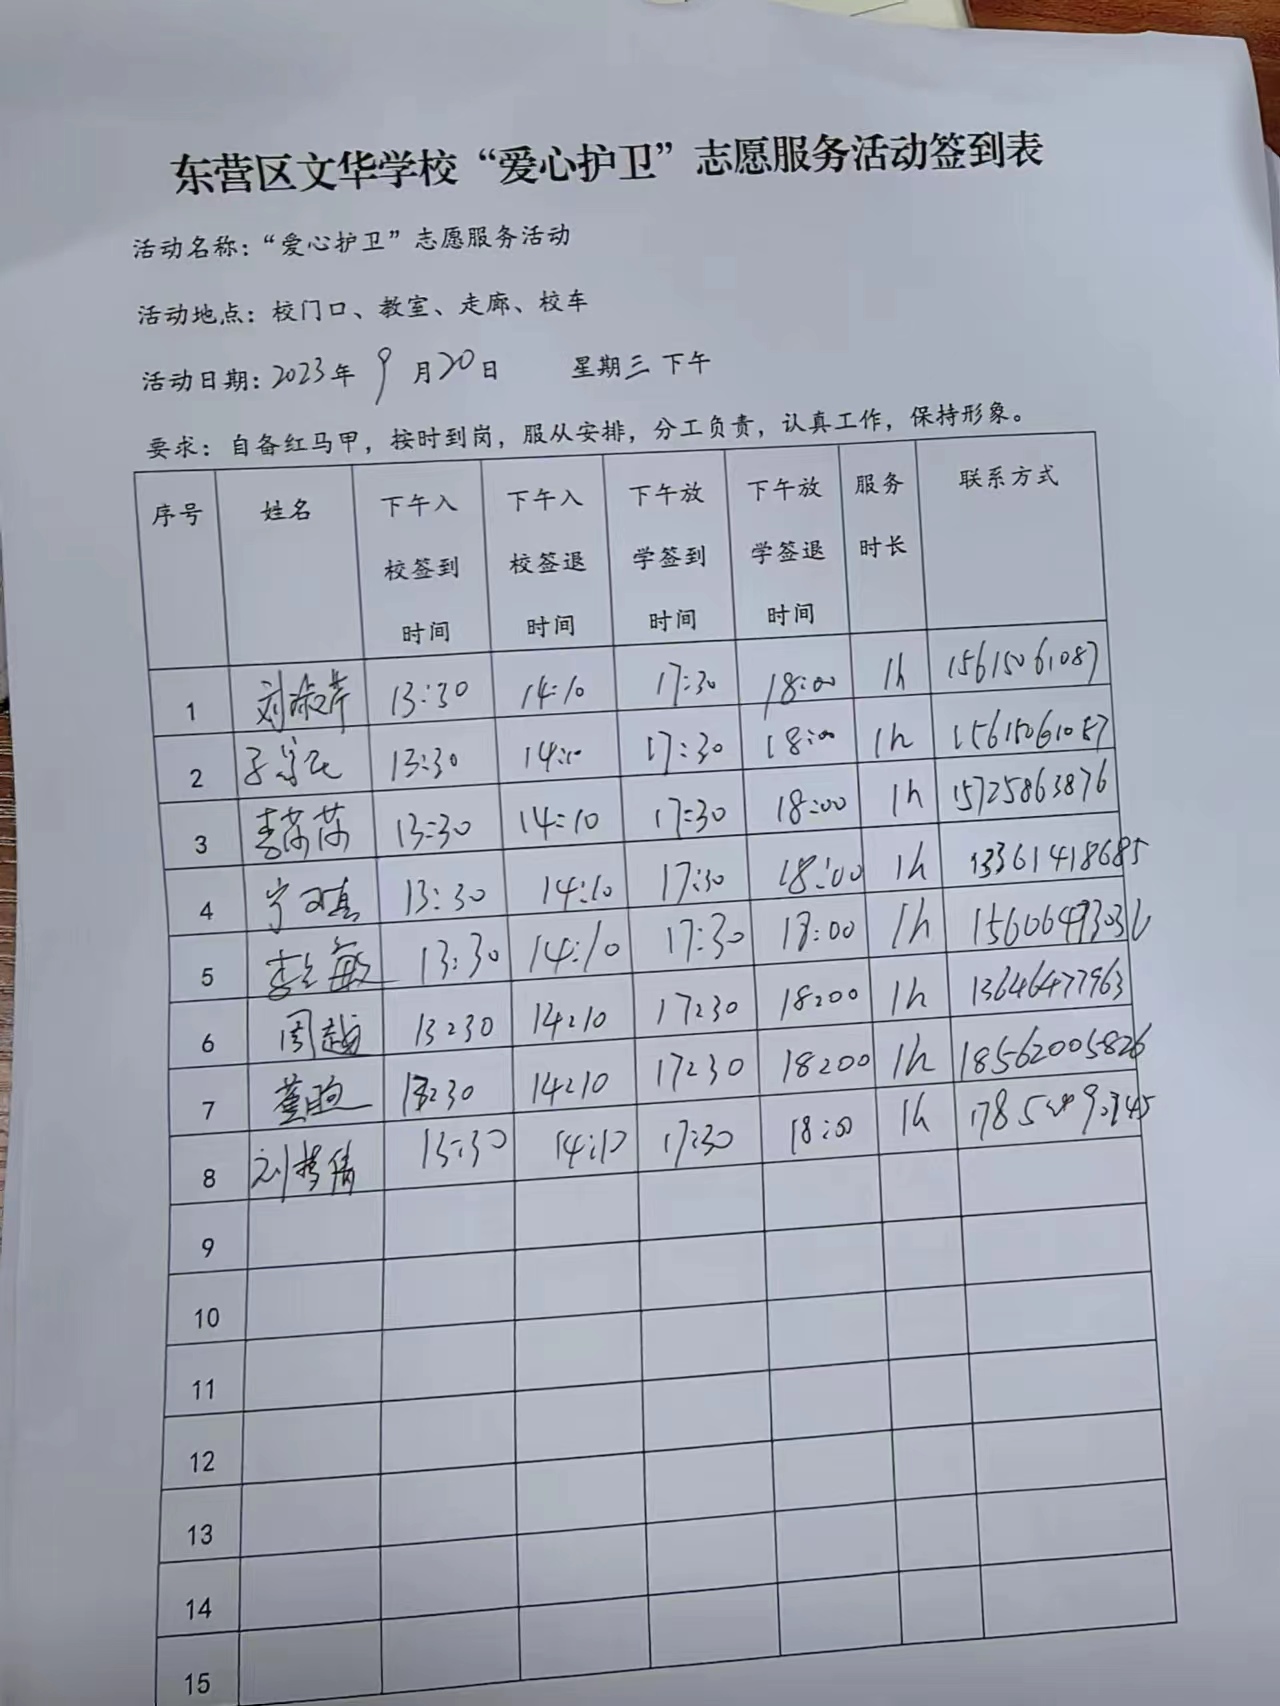 东营区文华学校“爱心护卫”志愿服务活动签到表
活动名称：“爱心护卫”志愿服务活动
活动地点：校门口、教室、走廊、校车
活动日期：2023年 9 月20日 星期三 下午
要求：自备红马甲，按时到岗，服从安排，分工负责，认真工作，保持形象。
序号 姓名 下午入校签到时间 下午入校签退时间 下午放学签到时间 下午放学签退时间 服务时长 联系方式
1 刘淑芹 13:30 14:10 17:30 18:00 1h 15615061087
2 13:30 14:10 17:30 18:00 1h 15615061087
3 李茶茶 13:30 14:10 17:30 18:00 1h 15725863876
4 13:30 14:10 17:30 18:00 1h 13361418685
5 13:30 14:10 17:30 18:00 1h
6 周越 13:30 14:10 17:30 18:00 1h 13646477963
7 13:30 14:10 17:30 18:00 1h 18562005826
8 刘梦倩 13:30 14:10 17:30 18:00 1h
9
10
11
12
13
14
15